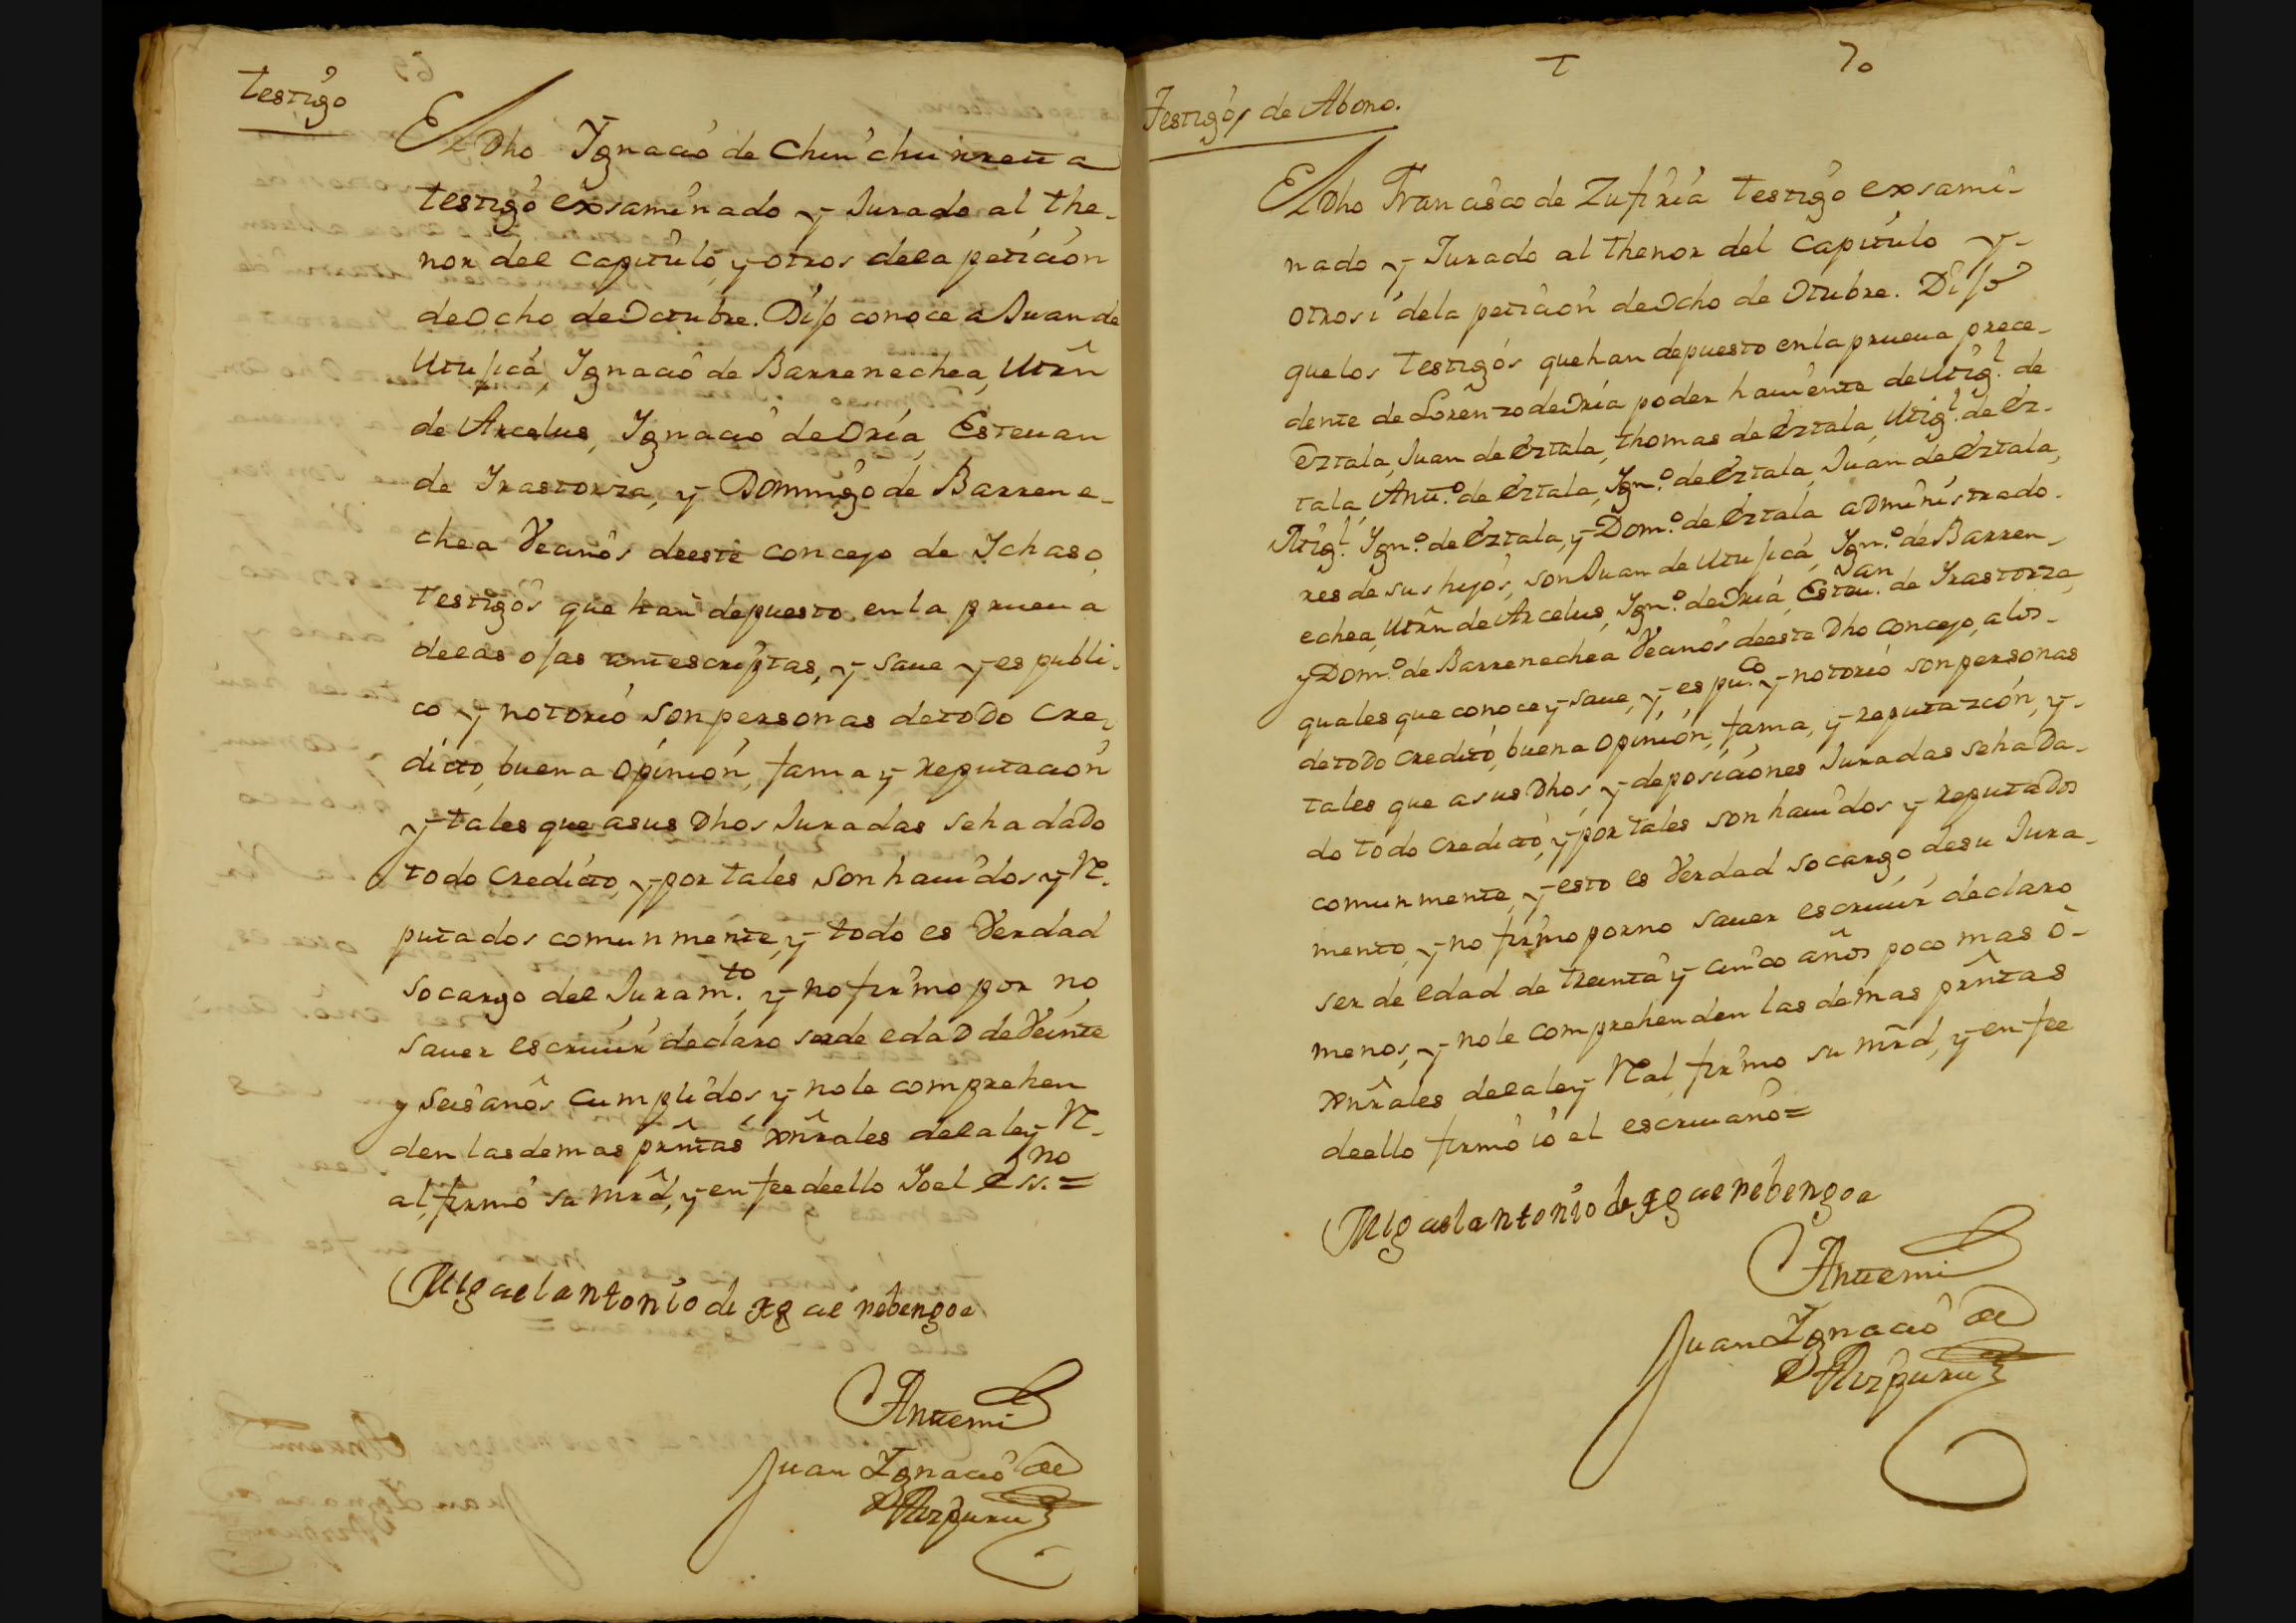 Testigo
El Dho Ygnacio de Chinchurreta
testigo exsaminado y Jurado al the-
nor del capitulo, y otros dela peticion
de Ocho de Octubre. Dijo conoce a Juan de
Ygnacio de Barrenechea,
de Arcelus, Ygnacio de Oria, Esteuan
de Yrastorza, y Domingo de Barrene-
chea Vecinos deeste concejo de Ychaso,
testigos que han depuesto enla prueua
delas ojas antescriptas, y saue y es publi-
co y notorio son personas detodo cre-
dicto, buena Opinion, fama y reputacion
y tales que asus Dhos Juradas seha dado
todo credicto, y por tales son hauidos y Re-
putados comunmente, y todo es Verdad
socargo del Juram.to y no firmo por no
sauer escriuir declaro serde edad de Veinte
y seis años cumplidos y nole comprehen
den lasdemas prẽtas xñrales delaley Re-
al, firmo su mrd, y en fee deello Yo el essno. =
Miguel antonio de Aguerrebengoa
Antemi
Juan Ygnacio de
Aizpuru
70
Testigos de Abono.
El Dho Francisco de Zufiria testigo exsami-
nado y Jurado al thenor del Capitulo y-
otrosi dela peticion deOcho de Otubre. Dijo
quelos testigos que han depuesto enla prueua prece-
dente de Lorenzo deOria poder hauiente de Mig.l de
Eztala, Juan de Eztala, thomas de Eztala, Mig.l de Ez-
tala, Ant.o de Eztala, Ygn.o de Eztala, Juan de Eztala,
Mig.l Ygn.o de Eztala, y Dom.o de Eztala administrado-
res de sus hijos, son Juan de Ygn.o de Barren-
echea, de Arcelus, Ygn.o deOria, Esteu.an de Yrastorza,
y Dom.o de Barrenechea Vecinos deeste Dho concejo, alos-
quales que conoce y saue, y es pu.co y notorio son personas
detodo credito, buena opinion, fama, y reputazcion, y-
tales que asus Dhos, y deposiciones Juradas seha Da-
do todo credicto, y por tales son hauidos y reputados
comunmente, y esto es Verdad socargo desu Jura-
mento, y no firmo porno sauer escriuir declaro
ser de edad de treinta y cinco años poco mas o-
menos, y nole comprehenden las demas prẽtas
xñrales delaley Real firmo su mrd, y en fee
deello firmo io el escriuano =
Miguel antonio de Aguerrebengoa
Antemi
Juan Ygnacio de
Aizpuru